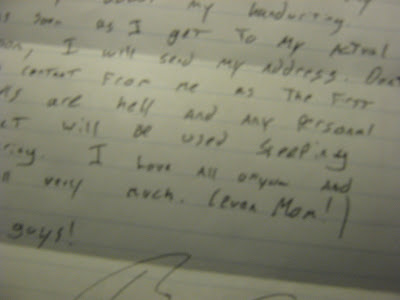 my handwriting.
soon as I get to my actual
I will send my address. Don't
contact from me as the first
are hell and any personal
will be used sleeping
I love all of you and
very much. (even Mom!)
guys!